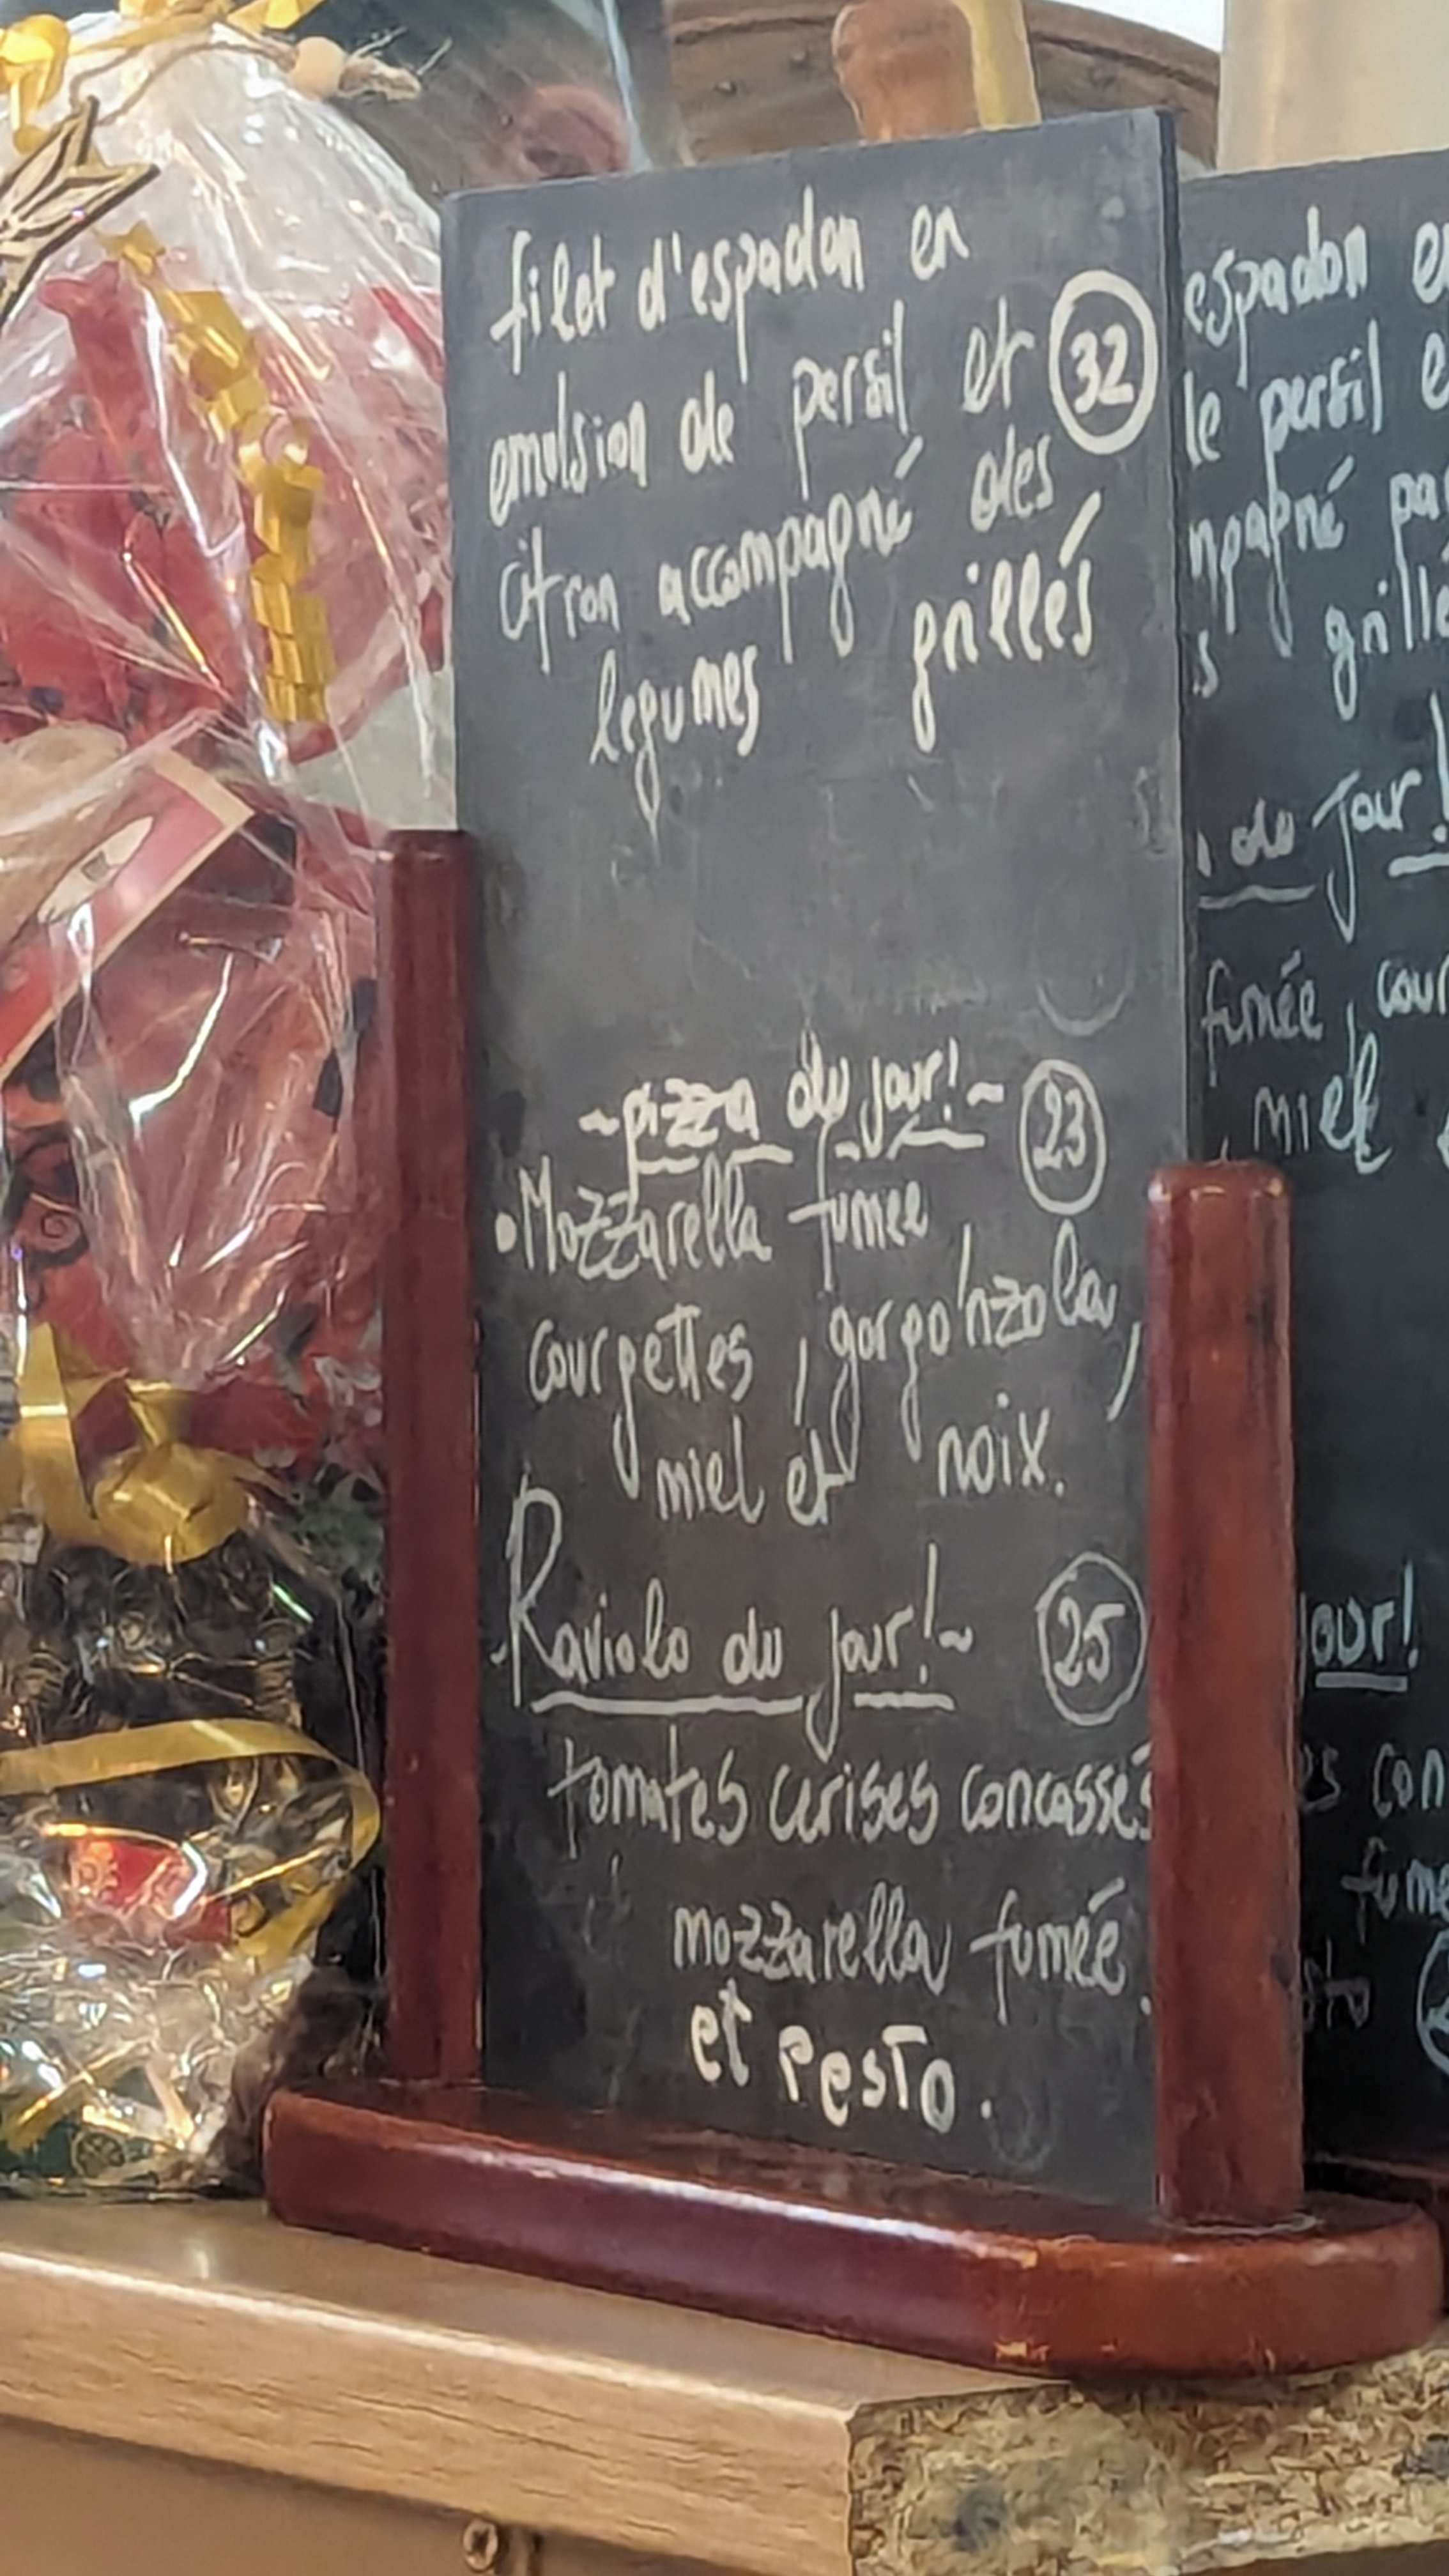 filet d'espadon en
emulsion de persil et 32
citron accompagné des
legumes grillés
~pizza du jour!~ 23
•Mozzarella fumée
courgettes, gorgonzola,
miel et noix.
~Raviolo du jour!~ 25
tomates cerises concassés
mozzarella fumée
et Pesto.
espadon
le persil
grillé
du jour!
fumée, cour
miel
jour!